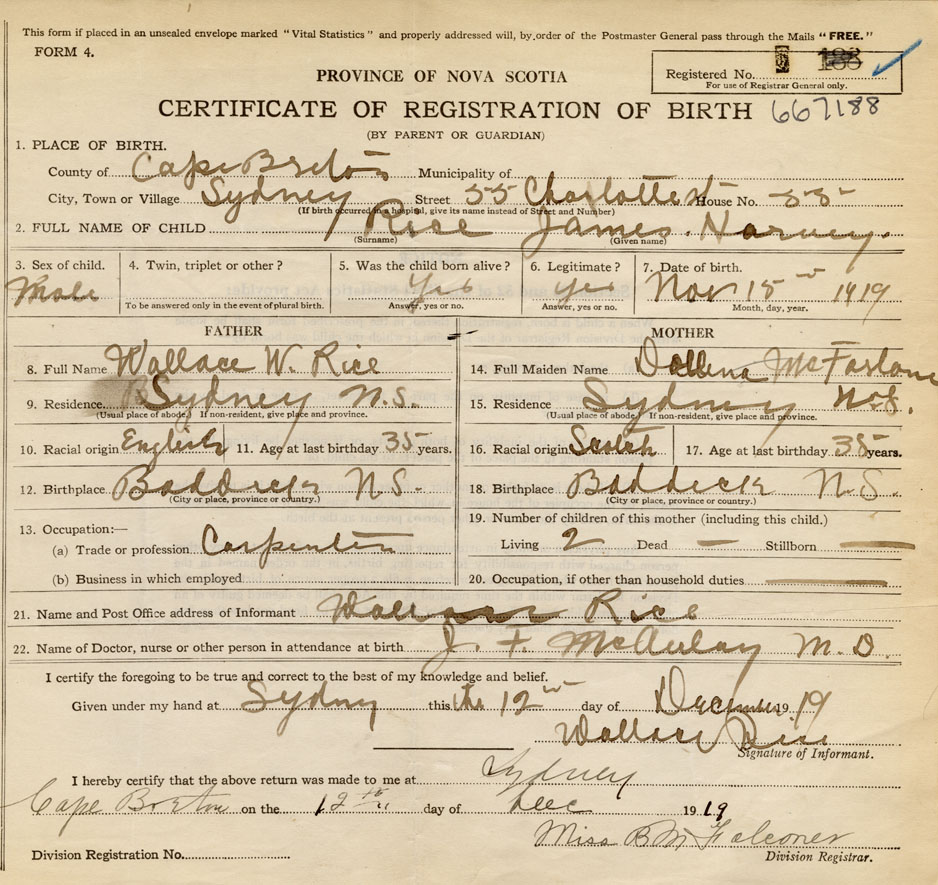 This form if placed in an unsealed envelope marked "Vital Statistics" and properly addressed will, by order of the Postmaster General pass through the Mails "FREE."
FORM 4.
PROVINCE OF NOVA SCOTIA
Registered No. 188
For use of Registrar General only.
CERTIFICATE OF REGISTRATION OF BIRTH 667188
(BY PARENT OR GUARDIAN)
1. PLACE OF BIRTH.
County of Cape Breton Municipality of
City, Town or Village Sydney Street 55 Charlotte St House No. 55
(If birth occurred in a hospital, give its name instead of Street and Number)
2. FULL NAME OF CHILD Rice James Harvey.
(Surname) (Given name)
3. Sex of child. 4. Twin, triplet or other? 5. Was the child born alive? 6. Legitimate? 7. Date of birth.
Male Yes Yes Nov 15 1919
To be answered only in the event of plural birth. Answer, yes or no. Answer, yes or no. Month, day, year.
FATHER MOTHER
8. Full Name Wallace W. Rice 14. Full Maiden Name Dollena McFarlane
9. Residence Sydney N.S. 15. Residence Sydney N.S.
(Usual place of abode.) If non-resident, give place and province. (Usual place of abode.) If non-resident, give place and province.
10. Racial origin English 11. Age at last birthday 35 years. 16. Racial origin Scotch 17. Age at last birthday 35 years.
12. Birthplace Baddeck N.S. 18. Birthplace Baddeck N.S.
(City or place, province or country.) (City or place, province or country.)
13. Occupation:— 19. Number of children of this mother (including this child.)
(a) Trade or profession Carpenter Living 2 Dead — Stillborn —
(b) Business in which employed 20. Occupation, if other than household duties —
21. Name and Post Office address of Informant Wallace Rice
22. Name of Doctor, nurse or other person in attendance at birth J. F. McAulay M.D.
I certify the foregoing to be true and correct to the best of my knowledge and belief.
Given under my hand at Sydney this the 12 day of December 1919
Wallace Rice
Signature of Informant.
I hereby certify that the above return was made to me at Sydney
Cape Breton on the 12th day of Dec 1919
Miss B M Falconer
Division Registration No. Division Registrar.